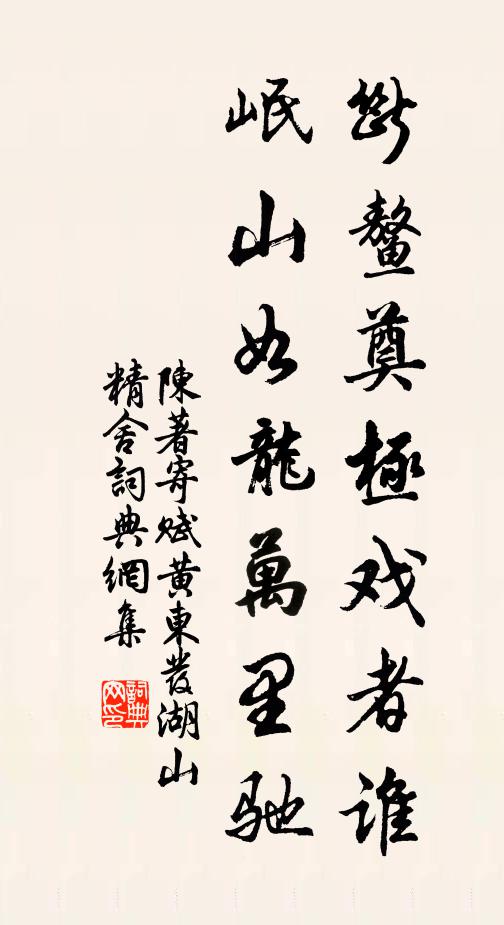 斷鼇奠極戏者誰
岷山如龍萬里馳
陳著寄賦黄東發湖山
精舍詞典網集
詞典
网印